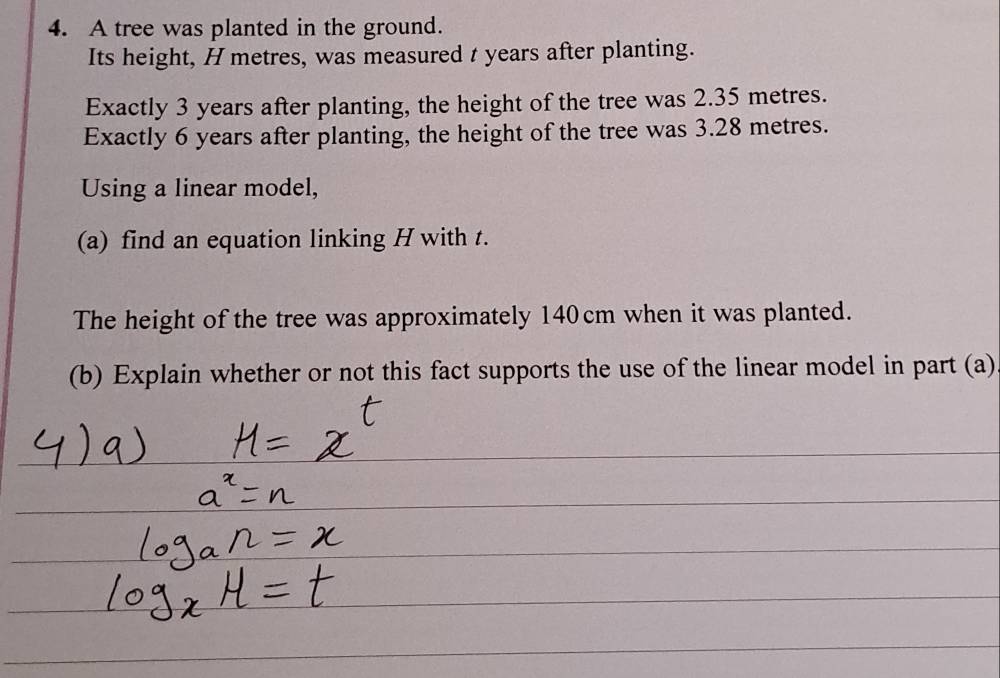 4. A tree was planted in the ground.
Its height, H metres, was measured t years after planting.
Exactly 3 years after planting, the height of the tree was 2.35 metres.
Exactly 6 years after planting, the height of the tree was 3.28 metres.
Using a linear model,
(a) find an equation linking H with t.
The height of the tree was approximately 140 cm when it was planted.
(b) Explain whether or not this fact supports the use of the linear model in part (a).
4) a) H = x^t
a^x = n
log_a n = x
log_x H = t